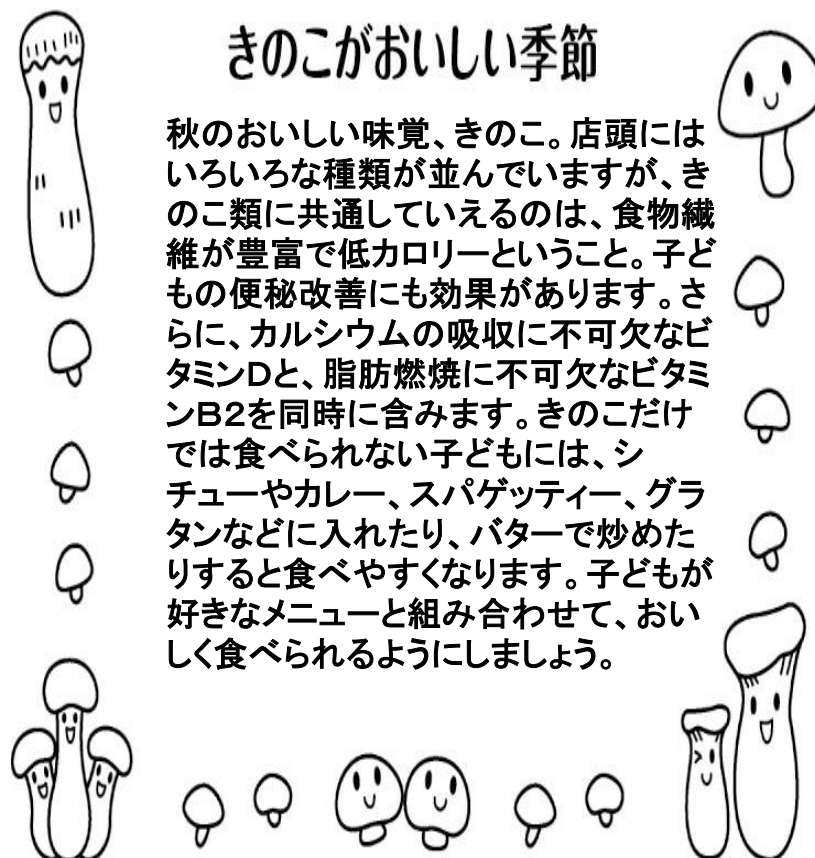 きのこがおいしい季節
秋のおいしい味覚、きのこ。店頭には
いろいろな種類が並んでいますが、き
のこ類に共通していえるのは、食物繊
維が豊富で低カロリーということ。子ど
もの便秘改善にも効果があります。さ
らに、カルシウムの吸収に不可欠なビ
タミンDと、脂肪燃焼に不可欠なビタミ
ンB2を同時に含みます。きのこだけ
では食べられない子どもには、シ
チューやカレー、スパゲッティー、グラ
タンなどに入れたり、バターで炒めた
りすると食べやすくなります。子どもが
好きなメニューと組み合わせて、おい
しく食べられるようにしましょう。